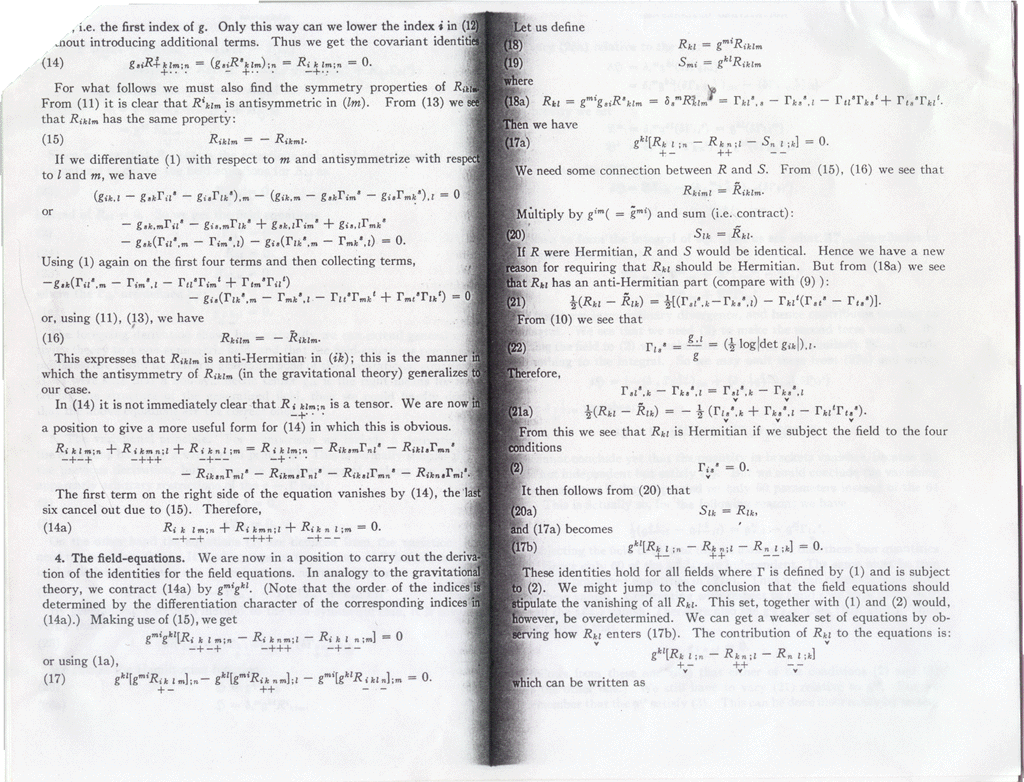 , i.e. the first index of g. Only this way can we lower the index i in (12)
without introducing additional terms. Thus we get the covariant identities
(14) g_{si}R^s_{klm;n} = (g_{si}R^s_{klm});n = R_{iklm;n} = 0.
+ · · · − + · · − + · ·
For what follows we must also find the symmetry properties of R_{iklm}
From (11) it is clear that R^i_{klm} is antisymmetric in (lm). From (13) we see
that R_{iklm} has the same property:
(15) R_{iklm} = − R_{ikml}.
If we differentiate (1) with respect to m and antisymmetrize with respect
to l and m, we have
(g_{ik,l} − g_{sk}Γ_{il}^s − g_{is}Γ_{lk}^s),_m − (g_{ik,m} − g_{sk}Γ_{im}^s − g_{is}Γ_{mk}^s),_l = 0
or
− g_{sk,m}Γ_{il}^s − g_{is,m}Γ_{lk}^s + g_{sk,l}Γ_{im}^s + g_{is,l}Γ_{mk}^s
− g_{sk}(Γ_{il}^s,_m − Γ_{im}^s,_l) − g_{is}(Γ_{lk}^s,_m − Γ_{mk}^s,_l) = 0.
Using (1) again on the first four terms and then collecting terms,
−g_{sk}(Γ_{il}^s,_m − Γ_{im}^s,_l − Γ_{tl}^sΓ_{im}^t + Γ_{tm}^sΓ_{il}^t)
− g_{is}(Γ_{lk}^s,_m − Γ_{mk}^s,_l − Γ_{lt}^sΓ_{mk}^t + Γ_{mt}^sΓ_{lk}^t) = 0
or, using (11), (13), we have
(16) R_{kilm} = − R̃_{iklm}.
This expresses that R_{iklm} is anti-Hermitian in (ik); this is the manner in
which the antisymmetry of R_{iklm} (in the gravitational theory) generalizes to
our case.
In (14) it is not immediately clear that R_{iklm;n} is a tensor. We are now in
− + · ·
a position to give a more useful form for (14) in which this is obvious.
R_{iklm;n} + R_{ikmn;l} + R_{iknl;m} = R_{iklm;n} − R_{iksm}Γ_{nl}^s − R_{ikls}Γ_{mn}^s
− + − + − + + + − + − − − + · · ·
− R_{iksn}Γ_{ml}^s − R_{ikms}Γ_{nl}^s − R_{iksl}Γ_{mn}^s − R_{ikns}Γ_{ml}^s.
The first term on the right side of the equation vanishes by (14), the last
six cancel out due to (15). Therefore,
(14a) R_{iklm;n} + R_{ikmn;l} + R_{iknl;m} = 0.
− + − + − + + + − + − −
4. The field-equations. We are now in a position to carry out the deriva-
tion of the identities for the field equations. In analogy to the gravitational
theory, we contract (14a) by g^{mi}g^{kl}. (Note that the order of the indices is
determined by the differentiation character of the corresponding indices in
(14a).) Making use of (15), we get
g^{mi}g^{kl}[R_{iklm;n} − R_{iknm;l} − R_{ikln;m}] = 0
− + − + − + + + − + − −
or using (1a),
(17) g^{kl}[g^{mi}R_{iklm}];n − g^{kl}[g^{mi}R_{iknm}];l − g^{mi}[g^{kl}R_{ikln}];m = 0.
+ − + + − −
Let us define
(18) R_{kl} = g^{mi}R_{iklm}
(19) S_{mi} = g^{kl}R_{iklm}
where
(18a) R_{kl} = g^{mi}g_{si}R^s_{klm} = δ_s^mR^s_{klm} = Γ_{kl}^s,_s − Γ_{ks}^s,_l − Γ_{tl}^sΓ_{ks}^t + Γ_{ts}^sΓ_{kl}^t.
Then we have
(17a) g^{kl}[R_{kl;n} − R_{kn;l} − S_{nl;k}] = 0.
+ − + + − −
We need some connection between R and S. From (15), (16) we see that
R_{kiml} = R̃_{iklm}.
Multiply by g^{im}( = g̃^{mi}) and sum (i.e. contract):
(20) S_{lk} = R̃_{kl}.
If R were Hermitian, R and S would be identical. Hence we have a new
reason for requiring that R_{kl} should be Hermitian. But from (18a) we see
that R_{kl} has an anti-Hermitian part (compare with (9) ):
(21) ½(R_{kl} − R̃_{lk}) = ½[(Γ_{sl}^s,_k − Γ_{ks}^s,_l) − Γ_{kl}^t(Γ_{st}^s − Γ_{ts}^s)].
From (10) we see that
(22) Γ_{ls}^s = g,l / g = (½ log|det g_{ik}|),_l.
Therefore,
Γ_{sl}^s,_k − Γ_{ks}^s,_l = Γ_{sl}^s,_k − Γ_{ks}^s,_l
(21a) ½(R_{kl} − R̃_{lk}) = − ½ (Γ_{ls}^s,_k + Γ_{ks}^s,_l − Γ_{kl}^tΓ_{ts}^s).
From this we see that R_{kl} is Hermitian if we subject the field to the four
conditions
(2) Γ_{is}^s = 0.
It then follows from (20) that
(20a) S_{lk} = R_{lk},
and (17a) becomes
(17b) g^{kl}[R_{kl;n} − R_{kn;l} − R_{nl;k}] = 0.
+ − + + − −
These identities hold for all fields where Γ is defined by (1) and is subject
to (2). We might jump to the conclusion that the field equations should
stipulate the vanishing of all R_{kl}. This set, together with (1) and (2) would,
however, be overdetermined. We can get a weaker set of equations by ob-
serving how R_{kl} enters (17b). The contribution of R_{kl} to the equations is:
g^{kl}[R_{kl;n} − R_{kn;l} − R_{nl;k}]
+ − + + − −
which can be written as